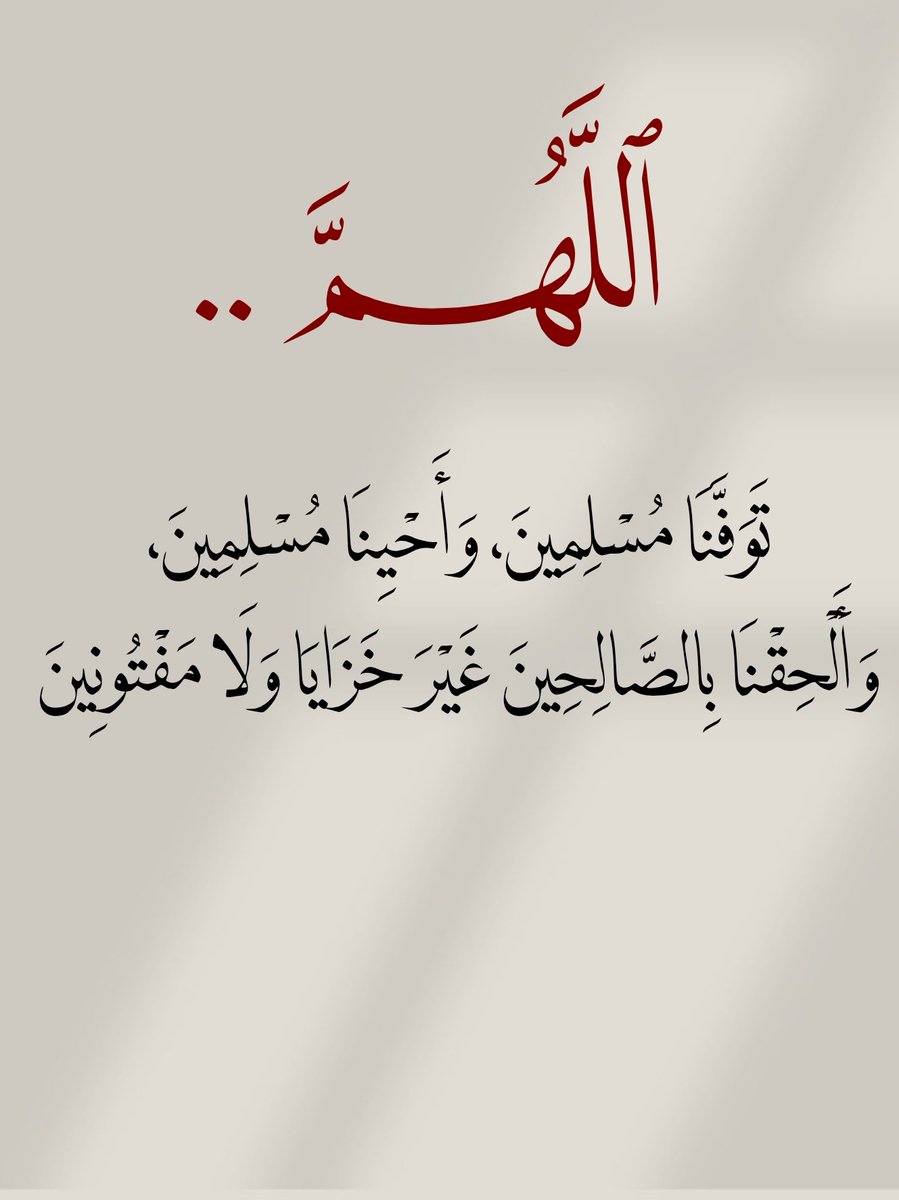 ٱللَّهُمَّ ..
تَوَفَّنَا مُسْلِمِينَ، وَأَحْيِنَا مُسْلِمِينَ،
وَأَلْحِقْنَا بِالصَّالِحِينَ غَيْرَ خَزَايَا وَلَا مَفْتُونِينَ